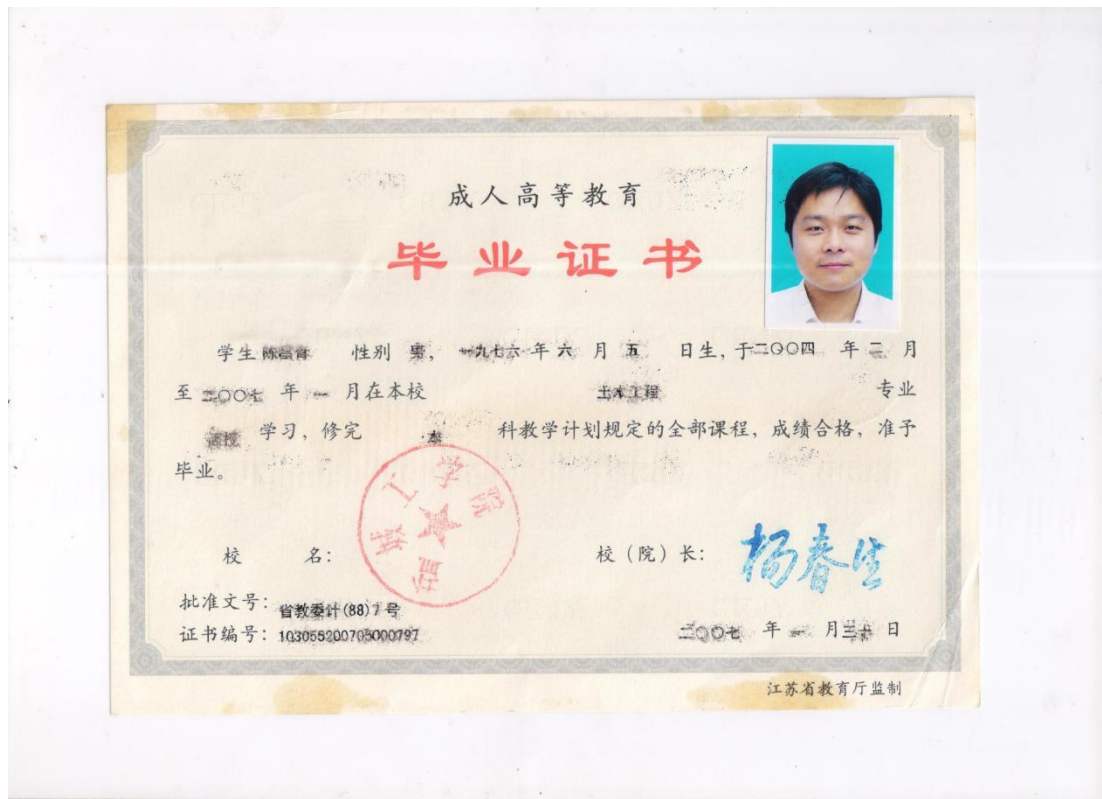 成人高等教育
毕业证书
学生 性别 男， 一九七六 年 六 月 五 日生，于二〇〇四 年 二 月
至 二〇〇七 年 一 月在本校 土木工程 专业
函授 学习，修完 本 科教学计划规定的全部课程，成绩合格，准予
毕业。
盐城工学院
校 名： 校（院）长： 杨春生
批准文号：省教委计(88)7号
证书编号：103055200705000797
二〇〇七 年 一 月 日
江苏省教育厅监制